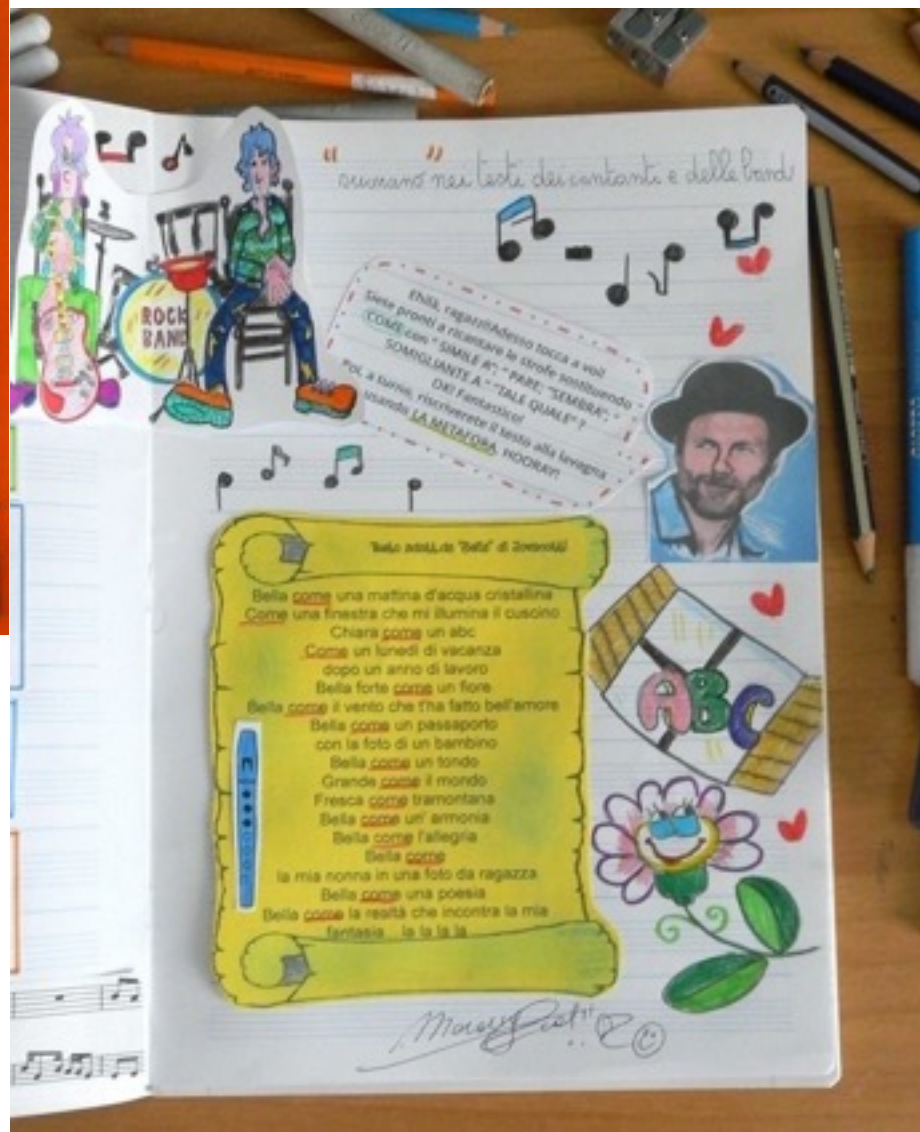 " "
suonano nei testi dei cantanti e delle band
ROCK
BAND
Ehilà, ragazzi!Adesso tocca a voi!
Siete pronti a ricantare le strofe sostituendo
COME con " SIMILE A"; " PARE; "SEMBRA"; "
SOMIGLIANTE A " "TALE QUALE" ?
OK! Fantastico!
Poi, a turno, riscriverete il testo alla lavagna
usando LA METAFORA. HOORAY!
Testo adatt.da "Bella" di Jovanotti
Bella come una mattina d'acqua cristallina
Come una finestra che mi illumina il cuscino
Chiara come un abc
Come un lunedì di vacanza
dopo un anno di lavoro
Bella forte come un fiore
Bella come il vento che t'ha fatto bell'amore
Bella come un passaporto
con la foto di un bambino
Bella come un tondo
Grande come il mondo
Fresca come tramontana
Bella come un' armonia
Bella come l'allegria
Bella come
la mia nonna in una foto da ragazza
Bella come una poesia
Bella come la realtà che incontra la mia
fantasia la la la la
ABC